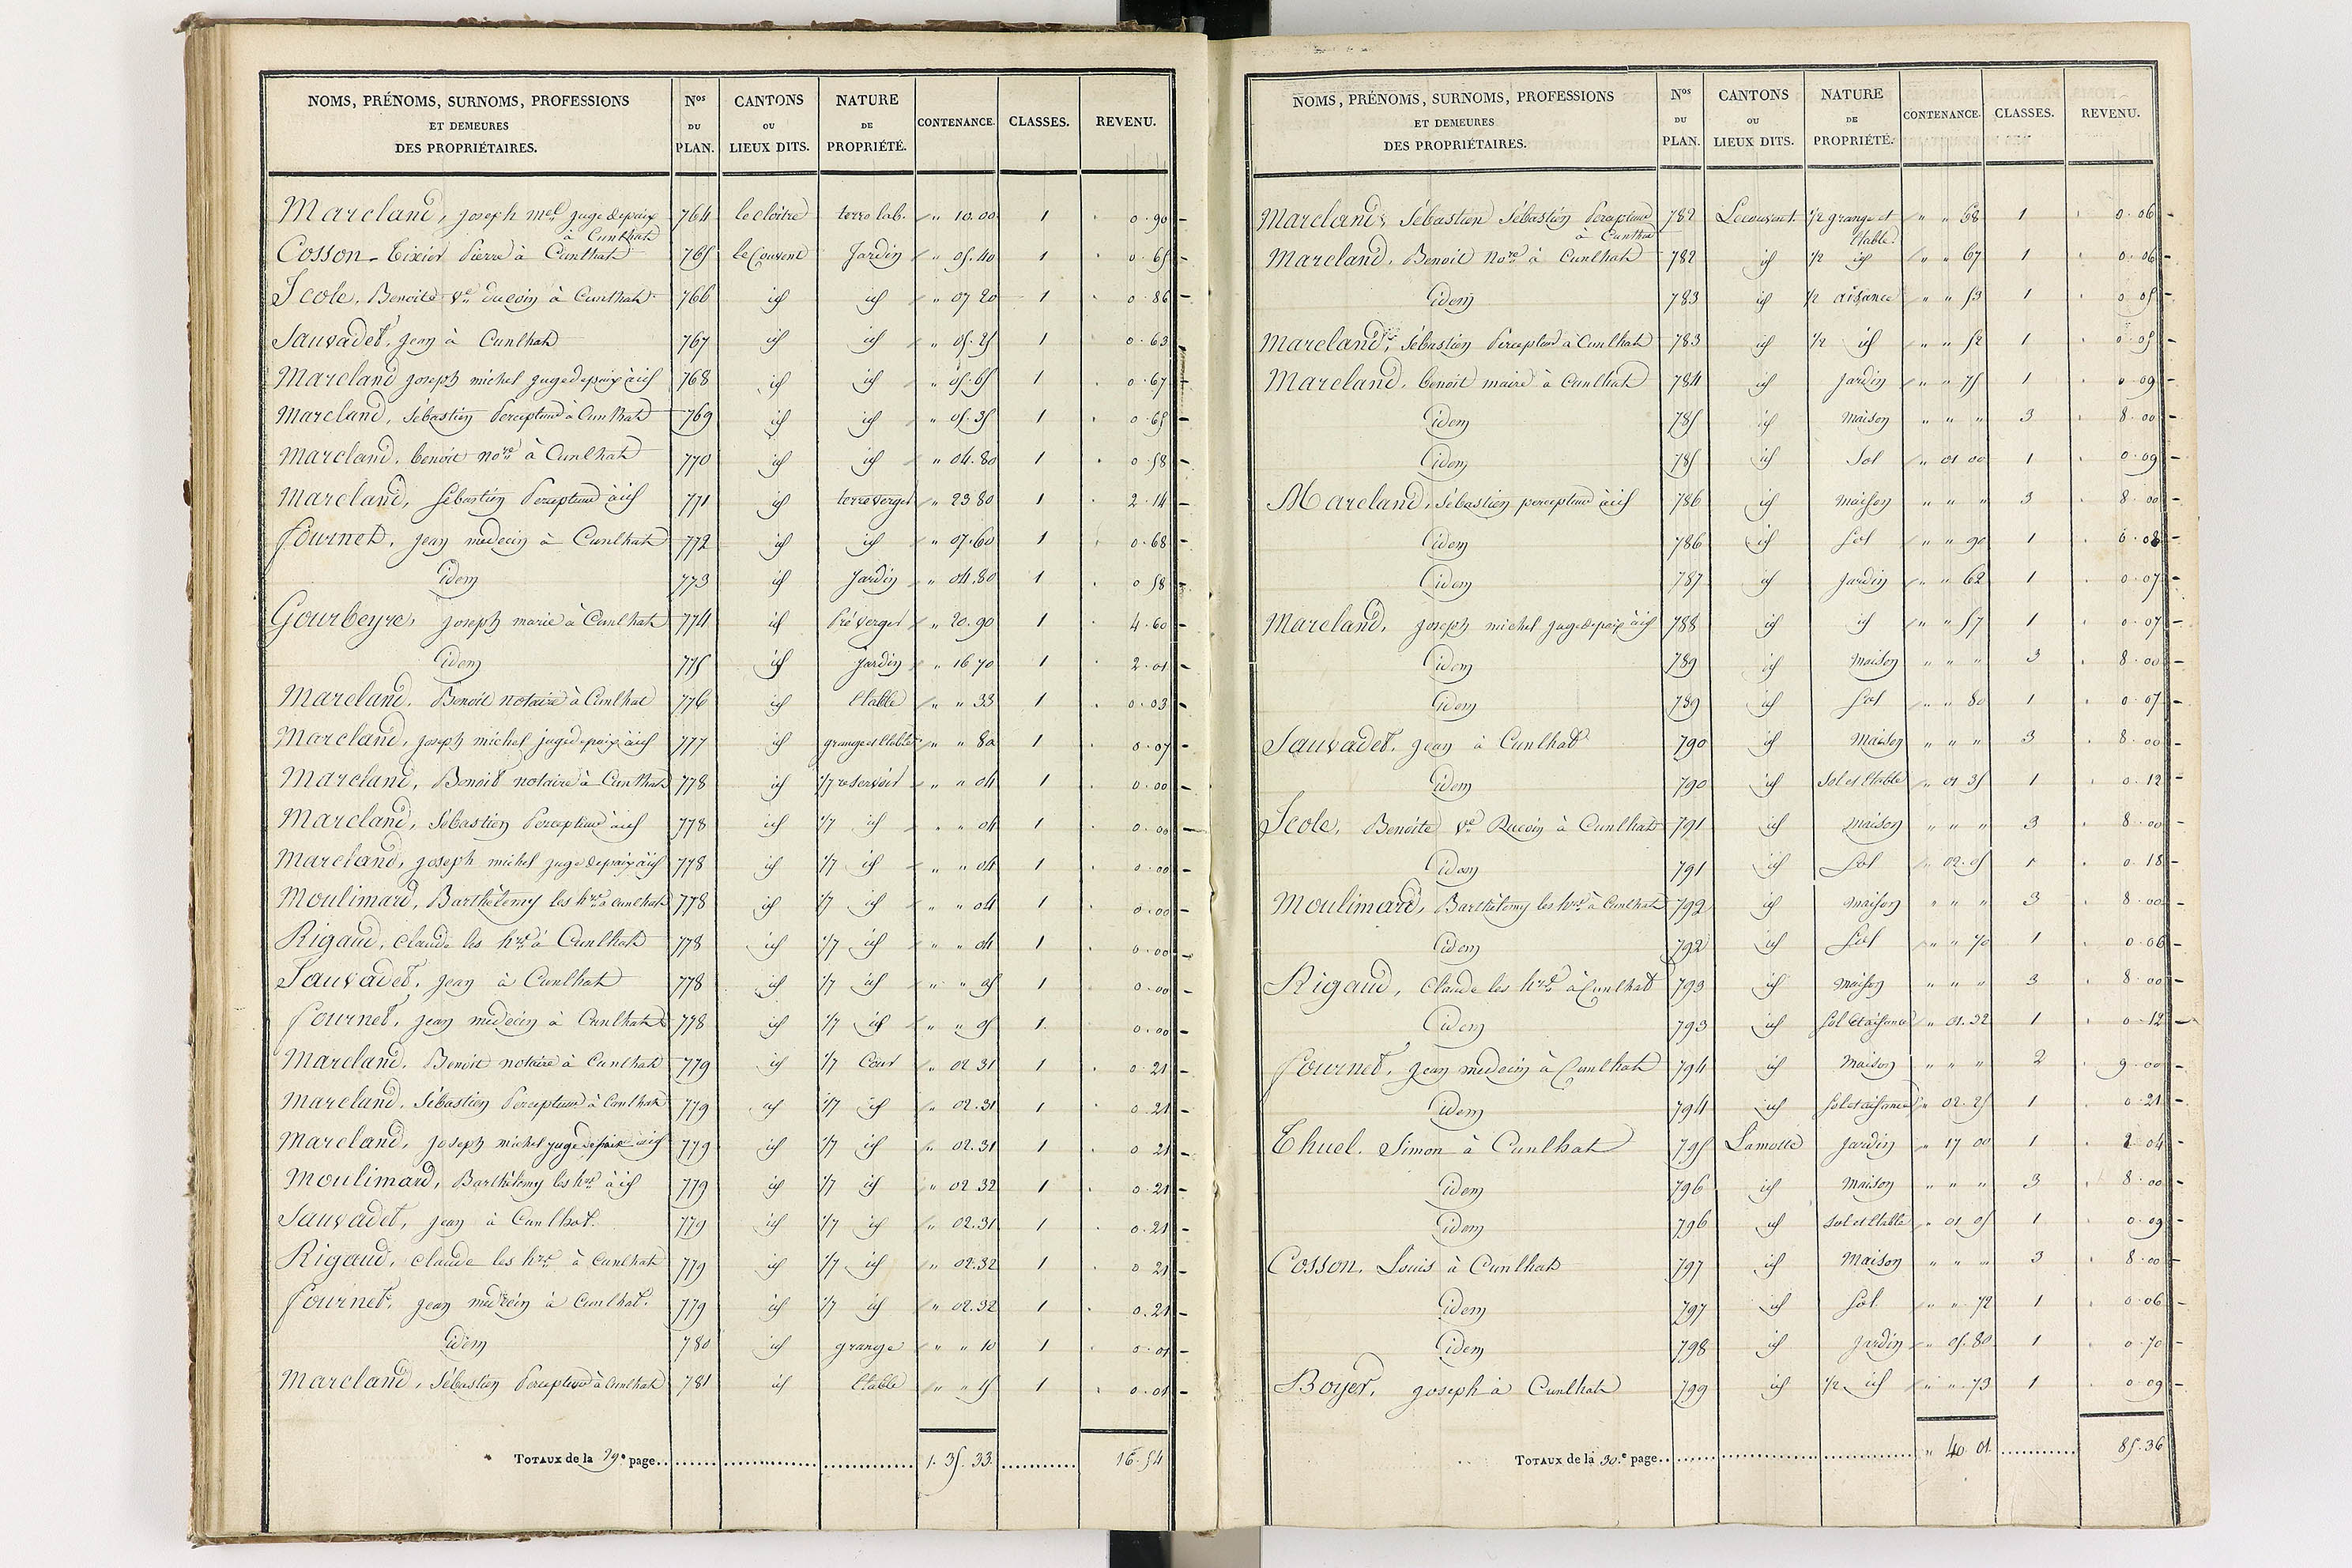 NOMS, PRÉNOMS, SURNOMS, PROFESSIONS ET DEMEURES DES PROPRIÉTAIRES. Nos DU PLAN. CANTONS OU LIEUX DITS. NATURE DE PROPRIÉTÉ. CONTENANCE. CLASSES. REVENU.
Marcland, joseph mel juge de paix à Cunlhat 764 le cloître terre lab. " 10.00 1 0.90
Cosson-Tixier Pierre à Cunlhat 765 le Couvent Jardin " 05.40 1 0.65
Scole, Benoite ve à Cunlhat 766 id id " 07 20 1 0.86
Sauvadet, jean à Cunlhat 767 id id " 05.25 1 0.63
Marcland joseph michel juge de paix à id 768 id id " 05.65 1 0.67
Marcland, Sébastien Percepteur à Cunlhat 769 id id " 05.35 1 0.65
Marcland, benoit nore à Cunlhat 770 id id " 04.80 1 0.58
Marcland, Sébastien Percepteur à id 771 id terre verger " 23 80 1 2.14
fournet, jean medecin à Cunlhat 772 id id " 07.60 1 0.68
Idem 773 id Jardin " 04.80 1 0.58
Gourbeyre, joseph marie à Cunlhat 774 id Pré verger " 20.90 1 4.60
Idem 775 id jardin " 16 70 1 2.01
Marcland, Benoit notaire à Cunlhat 776 id Etable " " 33 1 0.03
Marcland, joseph michel juge de paix à id 777 id grange et Etable " " 80 1 0.07
Marcland, Benoit notaire à Cunlhat 778 id 1/7 reservoir " " 04 1 0.00
Marcland, Sébastien Percepteur à id 778 id 1/7 id " " 04 1 0.00
Marcland, joseph michel juge de paix à id 778 id 1/7 id " " 04 1 0.00
Moulimard, Barthélemy les hrs à Cunlhat 778 id 1/7 id " " 04 1 0.00
Rigaud, claude les hrs à Cunlhat 778 id 1/7 id " " 04 1 0.00
Sauvadet, jean à Cunlhat 778 id 1/7 id " " 05 1 0.00
fournet, jean médecin à Cunlhat 778 id 1/7 id " " 05 1. 0.00
Marcland, Benoit notaire à Cunlhat 779 id 1/7 Cour " 02 31 1 0 21
Marcland, Sébastien Percepteur à Cunlhat 779 id 1/7 id " 02.31 1 0.21
Marcland, joseph michel juge de paix à id 779 id 1/7 id " 02.31 1 0 21
Moulimard, Barthélemy les hrs à id 779 id 1/7 id " 02.32 1 0.21
Sauvadet, jean à Cunlhat. 779 id 1/7 id " 02.31 1 0.21
Rigaud, claude les hrs à Cunlhat 779 id 1/7 id " 02.32 1 0 21
fournet, jean médecin à Cunlhat. 779 id 1/7 id " 02.32 1 0.21
Idem 780 id grange " " 10 1 0.01
Marcland, Sébastien Percepteur à Cunlhat 781 id Etable " " 15 1 0.01
TOTAUX de la 29e page 1. 35. 33 16.54
NOMS, PRÉNOMS, SURNOMS, PROFESSIONS ET DEMEURES DES PROPRIÉTAIRES. Nos DU PLAN. CANTONS OU LIEUX DITS. NATURE DE PROPRIÉTÉ. CONTENANCE. CLASSES. REVENU.
Marcland, Sébastien Sébastien Percepteur à Cunlhat 782 Lecouvent 1/2 grange et Etable " " 68 1 0.06
Marcland, Benoit Nore à Cunlhat 782 id 1/2 id " " 67 1 0.06
Idem 783 id 1/2 aisance " " 53 1 0 05
Marcland, Sébastien Percepteur à Cunlhat 783 id 1/2 id " " 52 1 0.05
Marcland, benoit maire à Cunlhat 784 id Jardin " " 75 1 0 09
Idem 785 id Maison " " " 3 8.00
Idem 785 id Sol " 01 00 1 0.09
Marcland, Sébastien percepteur à id 786 id maison " " " 3 8.00
Idem 786 id Sol " " 90 1 0.08
Idem 787 id Jardin " " 62 1 0.07
Marcland, joseph michel juge de paix à id 788 id id " " 57 1 0.07
Idem 789 id Maison " " " 3 8.00
Idem 789 id Sol " " 80 1 0.07
Sauvadet, jean à Cunlhat 790 id Maison " " " 3 8.00
Idem 790 id Sol et Etable " 01 35 1 0.12
Scole, Benoite ve à Cunlhat 791 id maison " " " 3 8.00
Idem 791 id Sol " 02.05 1 0 18
Moulimard, Barthélemy les hrs à Cunlhat 792 id maison " " " 3 8.00
Idem 792 id Sol " " 70 1 0.06
Rigaud, Claude les hrs à Cunlhat 793 id maison " " " 3 8.00
Idem 793 id Sol et aisance " 01.32 1 0.12
fournet, jean medecin à Cunlhat 794 id Maison " " " 2 9.00
Idem 794 id Sol et aisance " 02.25 1 0.21
Thuel, Simon à Cunlhat 795 Lamotte Jardin " 17 00 1 2 04
Idem 796 id Maison " " " 3 8.00
Idem 796 id Sol et Etable " 01 05 1 0.09
Cosson, Louis à Cunlhat 797 id Maison " " " 3 8.00
Idem 797 id Sol. " " 72 1 0.06
Idem 798 id Jardin " 05.80 1 0.70
Boyer, joseph à Cunlhat 799 id 1/2 id " " 73 1 0.09
TOTAUX de la 30.e page " 40 01 85.36